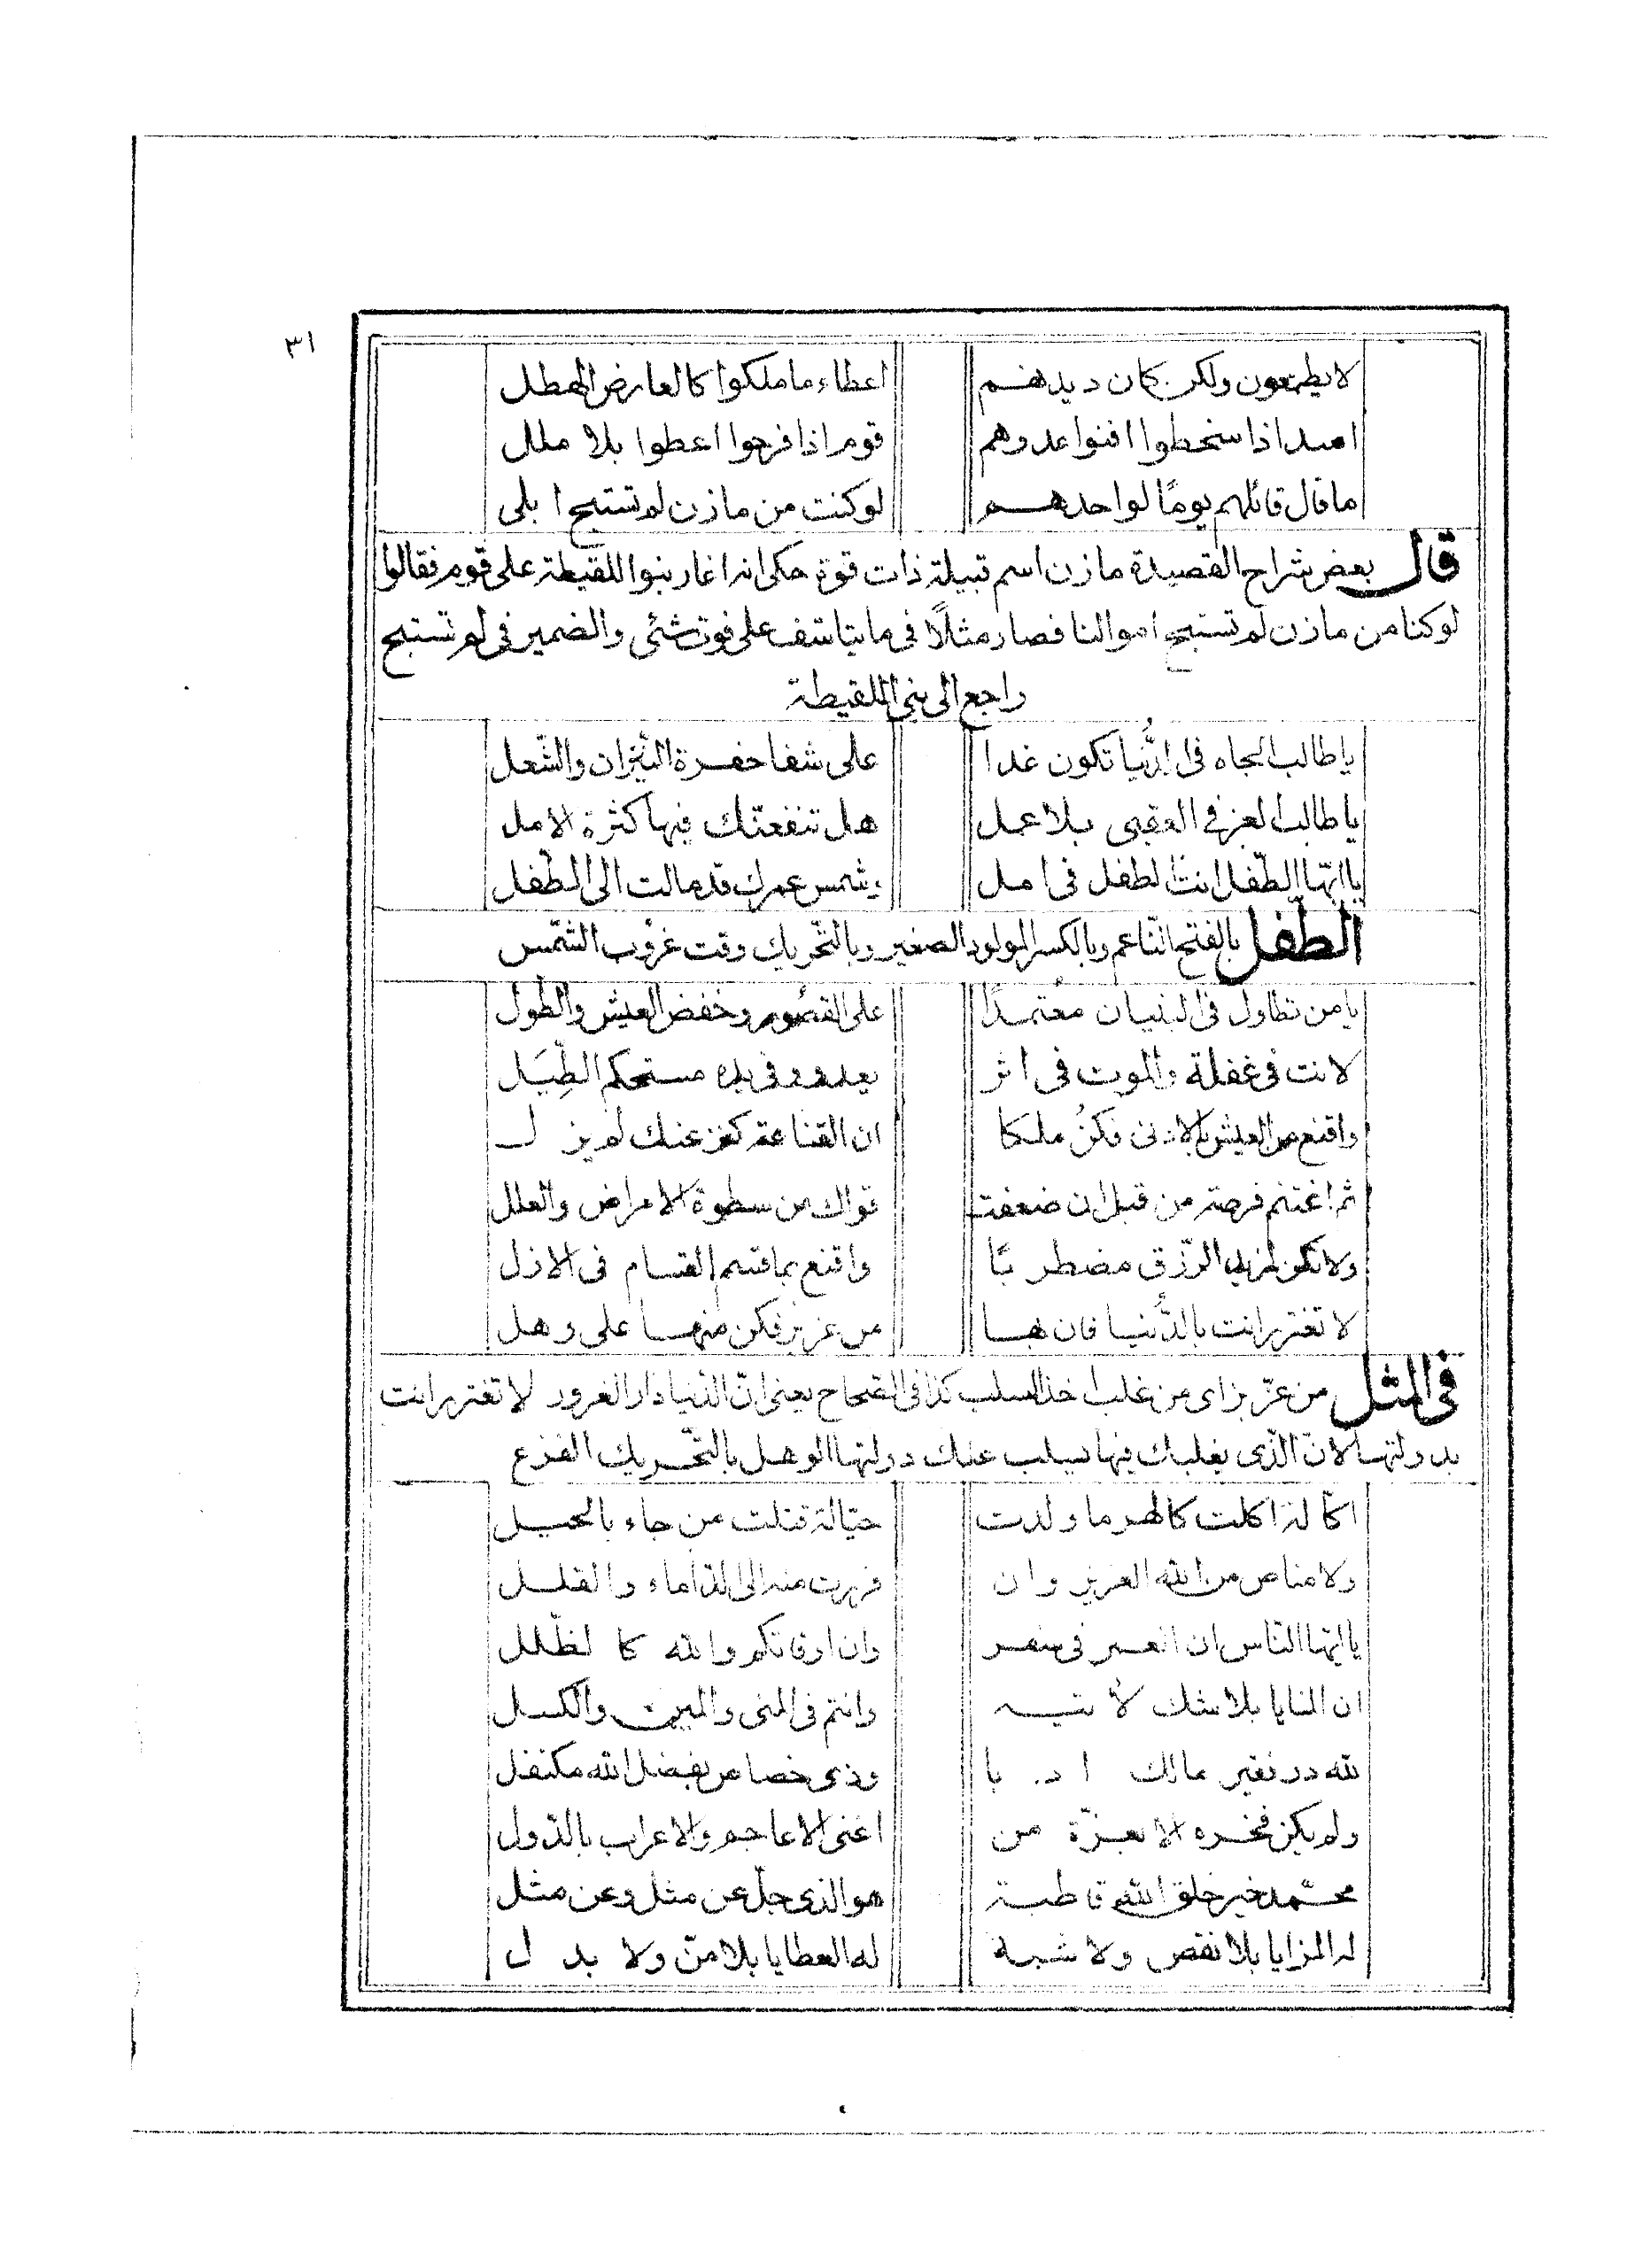 ٣١
لا يطمعون ولكن كان ديدنهم اعطاء ما ملكوا كالعارض الهطل
اسد اذا سخطوا افنوا عدوهم قوم اذا فرحوا اعطوا بلا ملل
ما قال قائلهم يومًا لواحدهم لو كنت من مازن لم تستبح ابلى
قال بعض شراح القصيدة مازن اسم قبيلة ذات قوة حكى انه اغار بنوا اللقيطة على قوم فقالوا
لو كنا من مازن لم تستبح اموالنا فصار مثلًا فى ما يتاسف على فوت شئى والضمير فى لم تستبح
راجع الى بنى اللقيطة
يا طالب الجاه فى الدُّنيا تكون غدا على شفا حفرة النّيران والشّعل
يا طالب العز فى العقبى بلا عمل هل تنفعنّك فيها كثرة الامل
يا ايّها الطّفل انت الطفل فى امل وشمس عمرك قد مالت الى الطّفل
الطّفل بالفتح النّاعم وبالكسر المولود الصغير وبالتّحريك وقت غروب الشّمس
يا من تطاول فى البنيان معتمدًا على القصُور وخفض العيش والطّول
لانت فى غفلة والموت فى اثر يعدو وفى يده مستحكم الطِّيَل
واقنع من العيش بالادنى فكُنْ ملكا ان القناعة كنز عنك لم يزل
ثم اغتنم فرصة من قبل ان ضعفت قواك من سطوة الامراض والعلل
ولا تكن لمزيد الرّزق مضطربًا واقنع بما قسم القسام فى الازل
لا تغترر انت بالدُّنيا فان بها من عز بز فكن منها على وهل
فى المثل من عزّ بز اى من غلب اخذ السلب كذا فى الصّحاح يعنى انّ الدّنيا دار الغرور لا تغترر انت
بدولتها لانّ الّذى يغلبك فيها يسلب عنك دولتها الوهل بالتّحريك الفزع
اكّالة اكلت كالهر ما ولدت حيّالة قتلت من جاء بالحيل
ولا مناص من الله العزيز وان فررت منه الى الدّاماء والقلل
يا ايّها النّاس ان العمر فى سفر وان اوقاتكم والله كالظّلل
ان المنايا بلا شك لآتيه وانتم فى المنى والمين والكسل
لله در فقير مالك ادبا وذى خصاص بفضل الله مكتفل
ولم يكن فخره الا بعزّة من اغنى الاعاجم والاعراب بالدّول
محمّد خير خلق الله قاطبة هو الذى جلّ عن مثل وعن مثل
له المزايا بلا نقص ولا شبه له العطايا بلا منّ ولا بدل